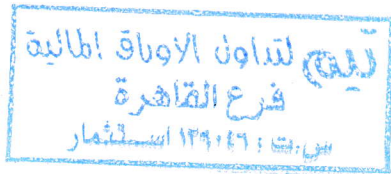 تايم لتداول الاوراق المالية
فرع القاهرة
س.ت : ١٢٩٠٤٦ استثمار